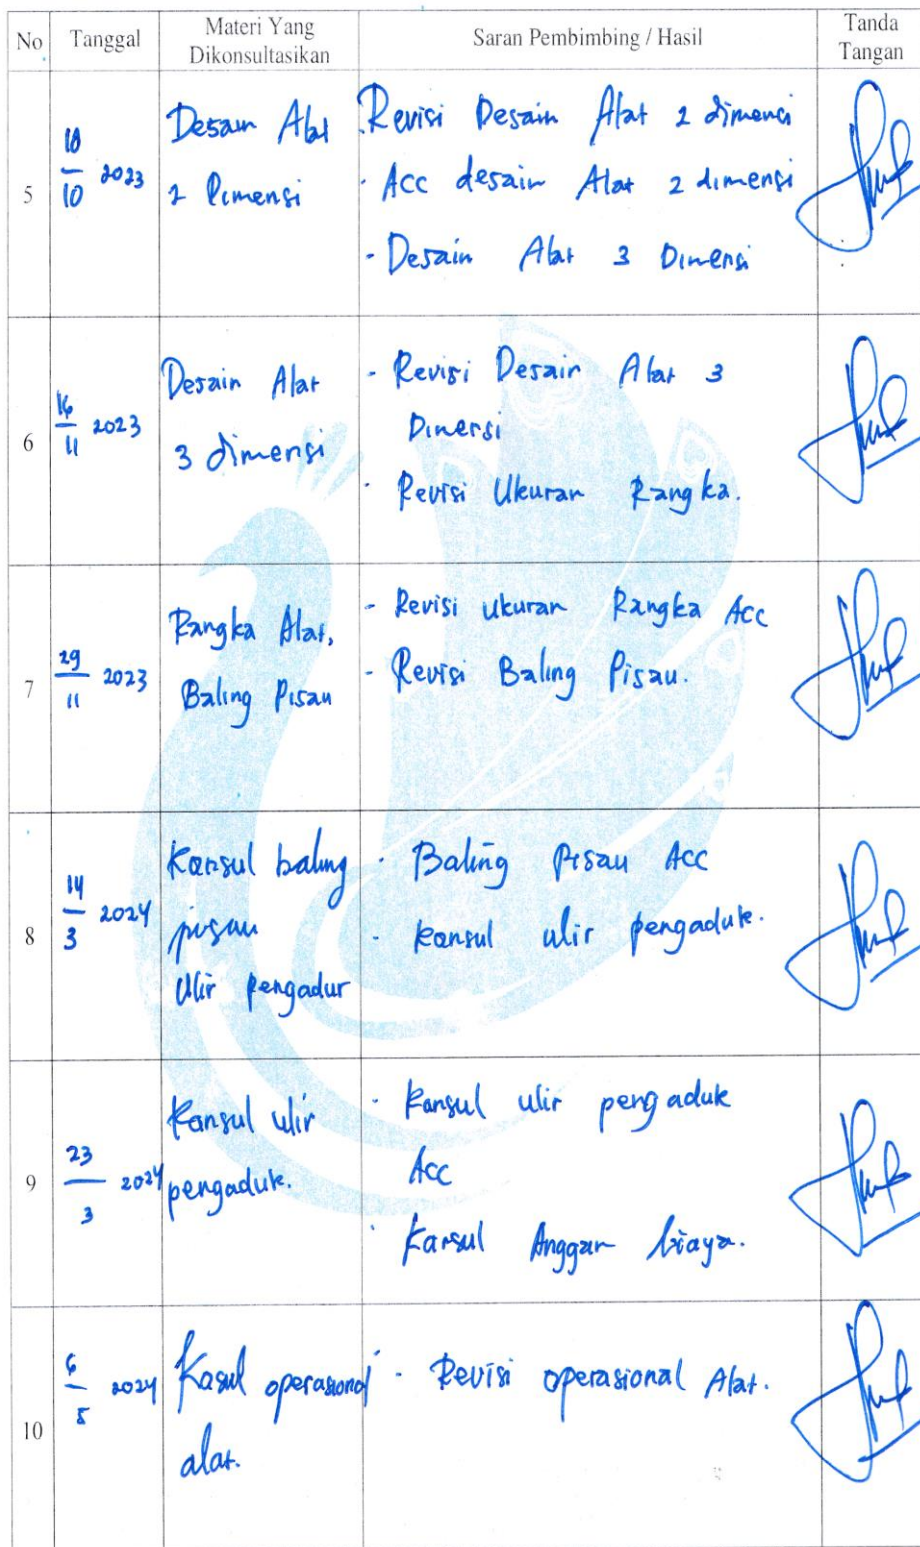 No Tanggal Materi Yang Dikonsultasikan Saran Pembimbing / Hasil Tanda Tangan
5
18/10 2023
Desain Alat
2 Dimensi
Revisi Desain Alat 2 dimensi
- Acc desain Alat 2 dimensi
- Desain Alat 3 Dimensi
6
16/11 2023
Desain Alat
3 dimensi
- Revisi Desain Alat 3
Dimensi
- Revisi Ukuran Rangka.
7
29/11 2023
Rangka Alat,
Baling Pisau
- Revisi ukuran Rangka Acc
- Revisi Baling Pisau.
8
14/3 2024
Konsul baling
pisau
Ulir pengadur
- Baling Pisau Acc
- konsul ulir pengaduk.
9
23/3 2024
Konsul ulir
pengaduk.
- Konsul ulir pengaduk
Acc
- Konsul Anggan biaya.
10
6/5 2024
Kasul operasional
alat.
- Revisi operasional Alat.